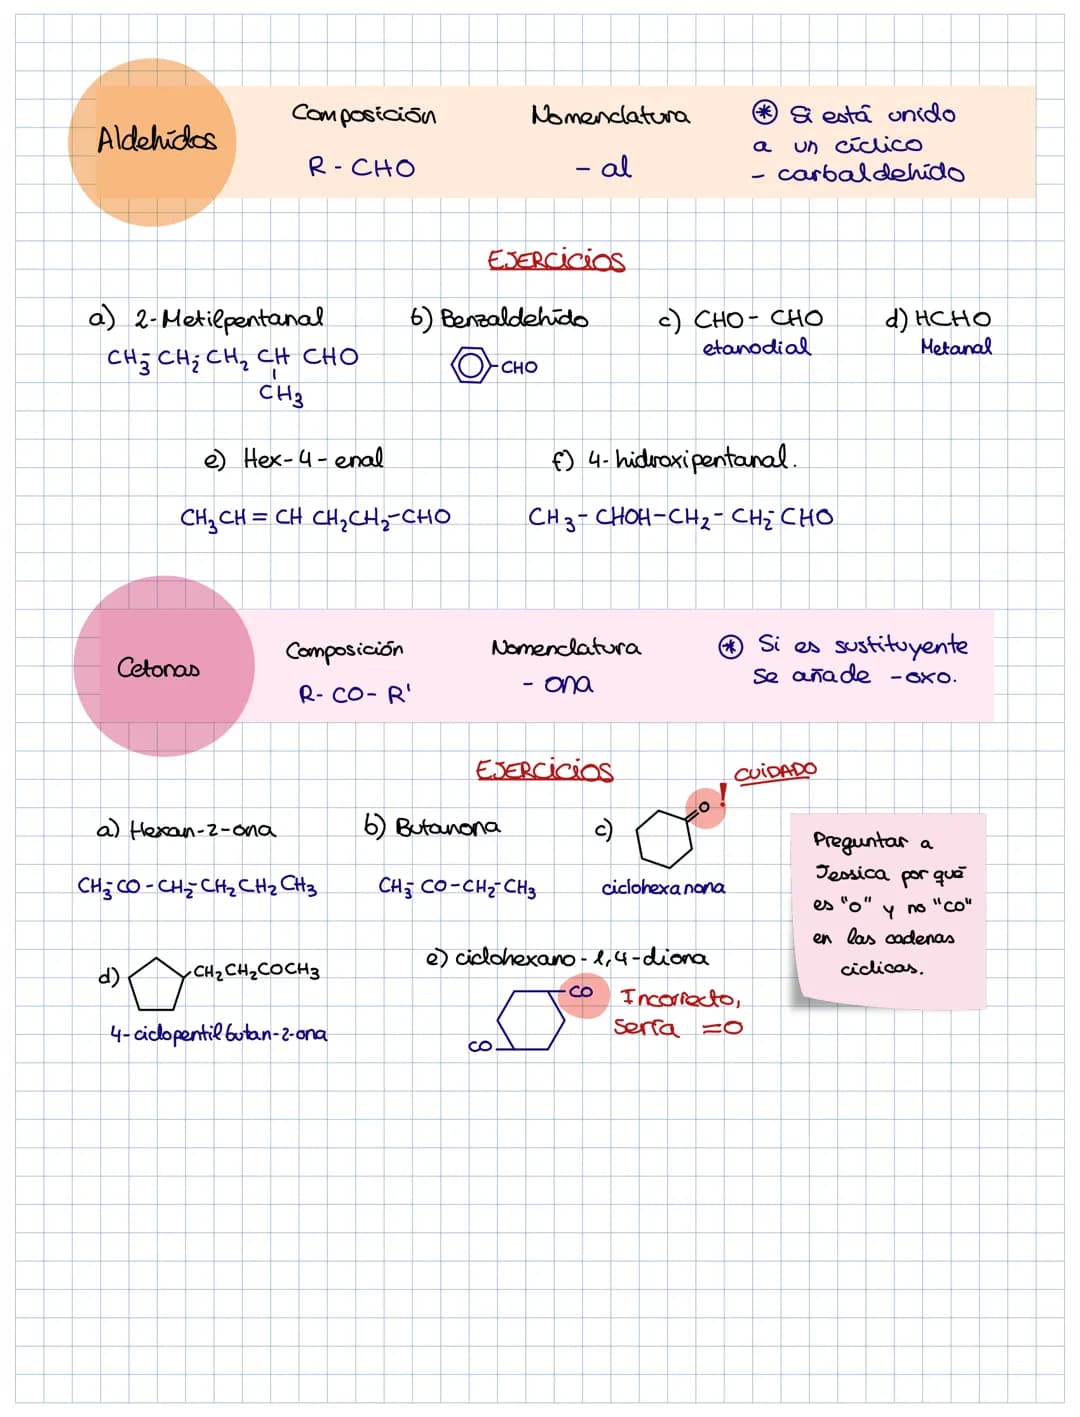 Aldehídos
Composición
R - CHO
Nomenclatura
- al
* Si está unido
a un cíclico
- carbaldehído
EJERCICIOS
a) 2-Metilpentanal
CH3-CH2-CH2 CH CHO
CH3
b) Benzaldehído
-CHO
c) CHO - CHO
etanodial
d) HCHO
Metanal
e) Hex-4-enal
CH3CH = CH CH2CH2-CHO
f) 4-hidroxipentanal.
CH3-CHOH-CH2-CH2-CHO
Cetonas
Composición
R-CO-R'
Nomenclatura
- ona
* Si es sustituyente
se añade -oxo.
EJERCICIOS
a) Hexan-2-ona
CH3-CO-CH2-CH2CH2CH3
b) Butanona
CH3-CO-CH2-CH3
c)
O
! CUIDADO
ciclohexanona
Preguntar a
Jessica por qué
es "o" y no "co"
en las cadenas
cíclicas.
d)
CH2CH2COCH3
4-ciclopentilbutan-2-ona
e) ciclohexano-1,4-diona
CO
CO
Incorrecto,
sería =O